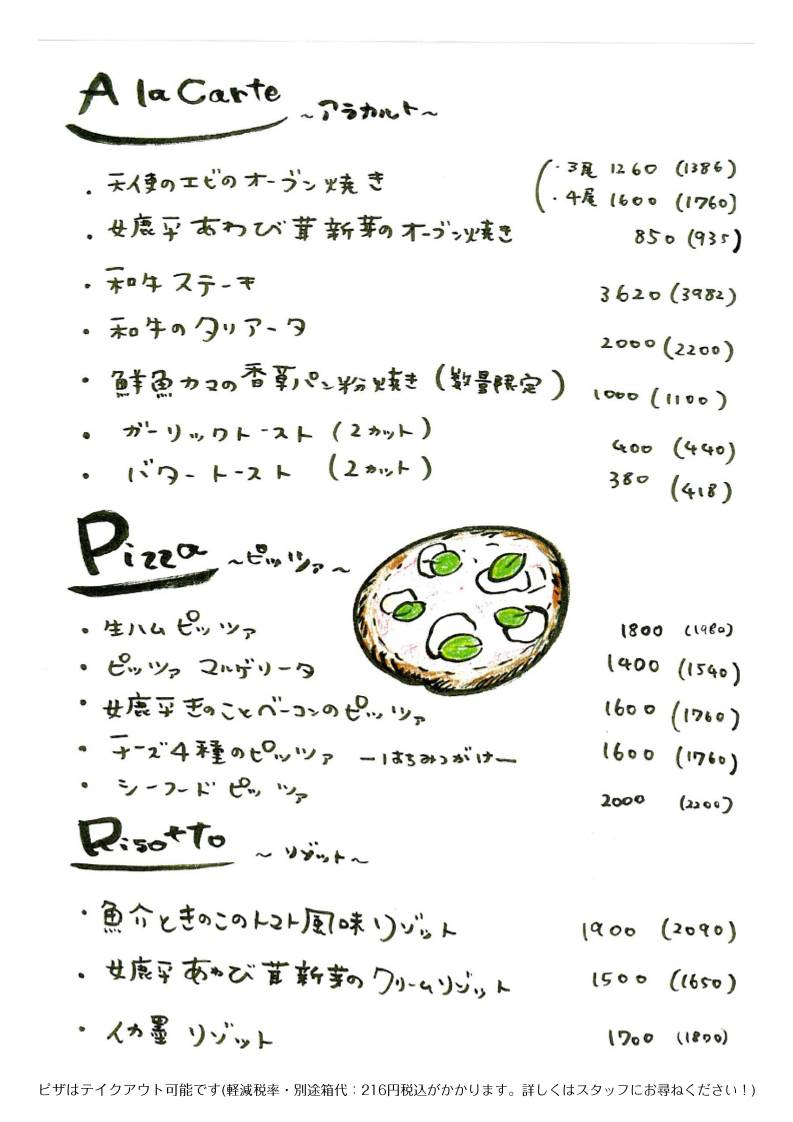 A la Carte ～アラカルト～
・天使のエビのオーブン焼き ・3尾 1260 (1386)
・4尾 1600 (1760)
・女鹿平あわび茸新芽のオーブン焼き 850 (935)
・和牛ステーキ 3620 (3982)
・和牛のタリアータ 2000 (2200)
・鮮魚カマの香草パン粉焼き (数量限定) 1000 (1100)
・ガーリックトースト (2カット) 400 (440)
・バタートースト (2カット) 380 (418)
Pizza ～ピッツァ～
・生ハムピッツァ 1800 (1980)
・ピッツァ マルゲリータ 1400 (1540)
・女鹿平きのことベーコンのピッツァ 1600 (1760)
・チーズ4種のピッツァ ーはちみつがけー 1600 (1760)
・シーフードピッツァ 2000 (2200)
Risotto ～リゾット～
・魚介ときのこのトマト風味リゾット 1900 (2090)
・女鹿平あわび茸新芽のクリームリゾット 1500 (1650)
・イカ墨リゾット 1700
ピザはテイクアウト可能です(軽減税率・別途箱代：216円税込がかかります。詳しくはスタッフにお尋ねください！)